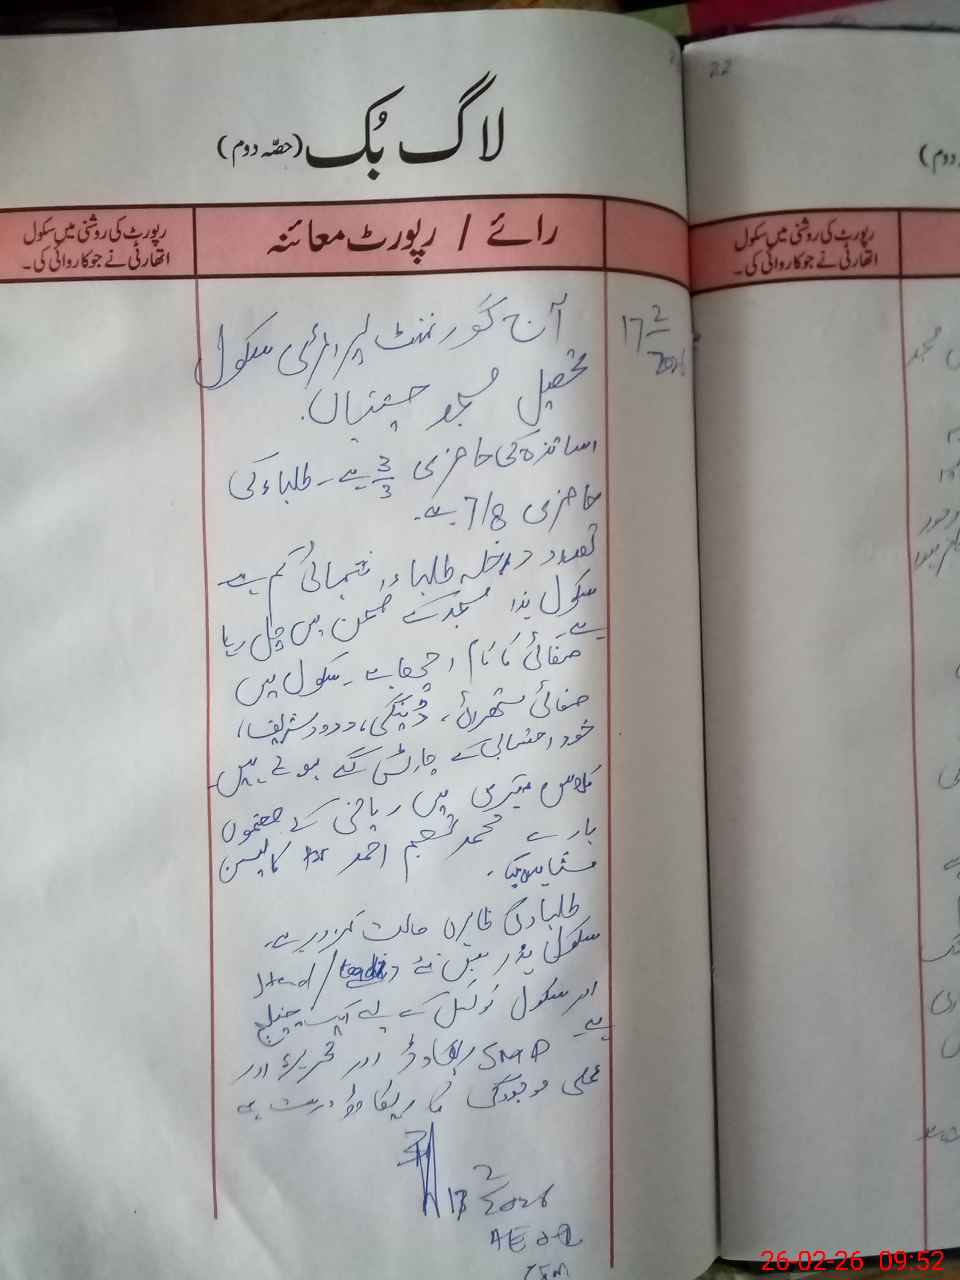 لاگ بُک (حصّہ دوم)
رائے / رپورٹ معائنہ
رپورٹ کی روشنی میں سکول
اتھارٹی نے جو کاروائی کی۔
17 2/2026
آج گورنمنٹ پرائمری سکول
تحصیل مسجد چشتیاں۔
اساتذہ کی حاضری 3/3 ہے۔ طلباء کی
حاضری 7/8 ہے۔
تعداد داخلہ طلباء انتہائی کم ہے
سکول ہذا مسجد کے صحن میں چل رہا
ہے
صفائی کا کام اچھا ہے۔ سکول میں
صفائی ستھرائی، ڈینگی، درود شریف،
خود احتسابی کے چارٹس لگے ہوئے ہیں۔
کلاس میں ریاضی کے مضمون
بارے محمد احمد کا لیسن
طلباء کی ظاہری حالت کمزور ہے۔
سکول ہذا میں نئے Head/
اور سکول کے لیے ایک چیلنج
ہے
ریکارڈ اور اور
عملی موجودگی کا ریکارڈ درست ہے
17 2/2026
AEO
22
دوم)
رپورٹ کی روشنی میں سکول
اتھارٹی نے جو کاروائی کی۔
26-02-26 09:52